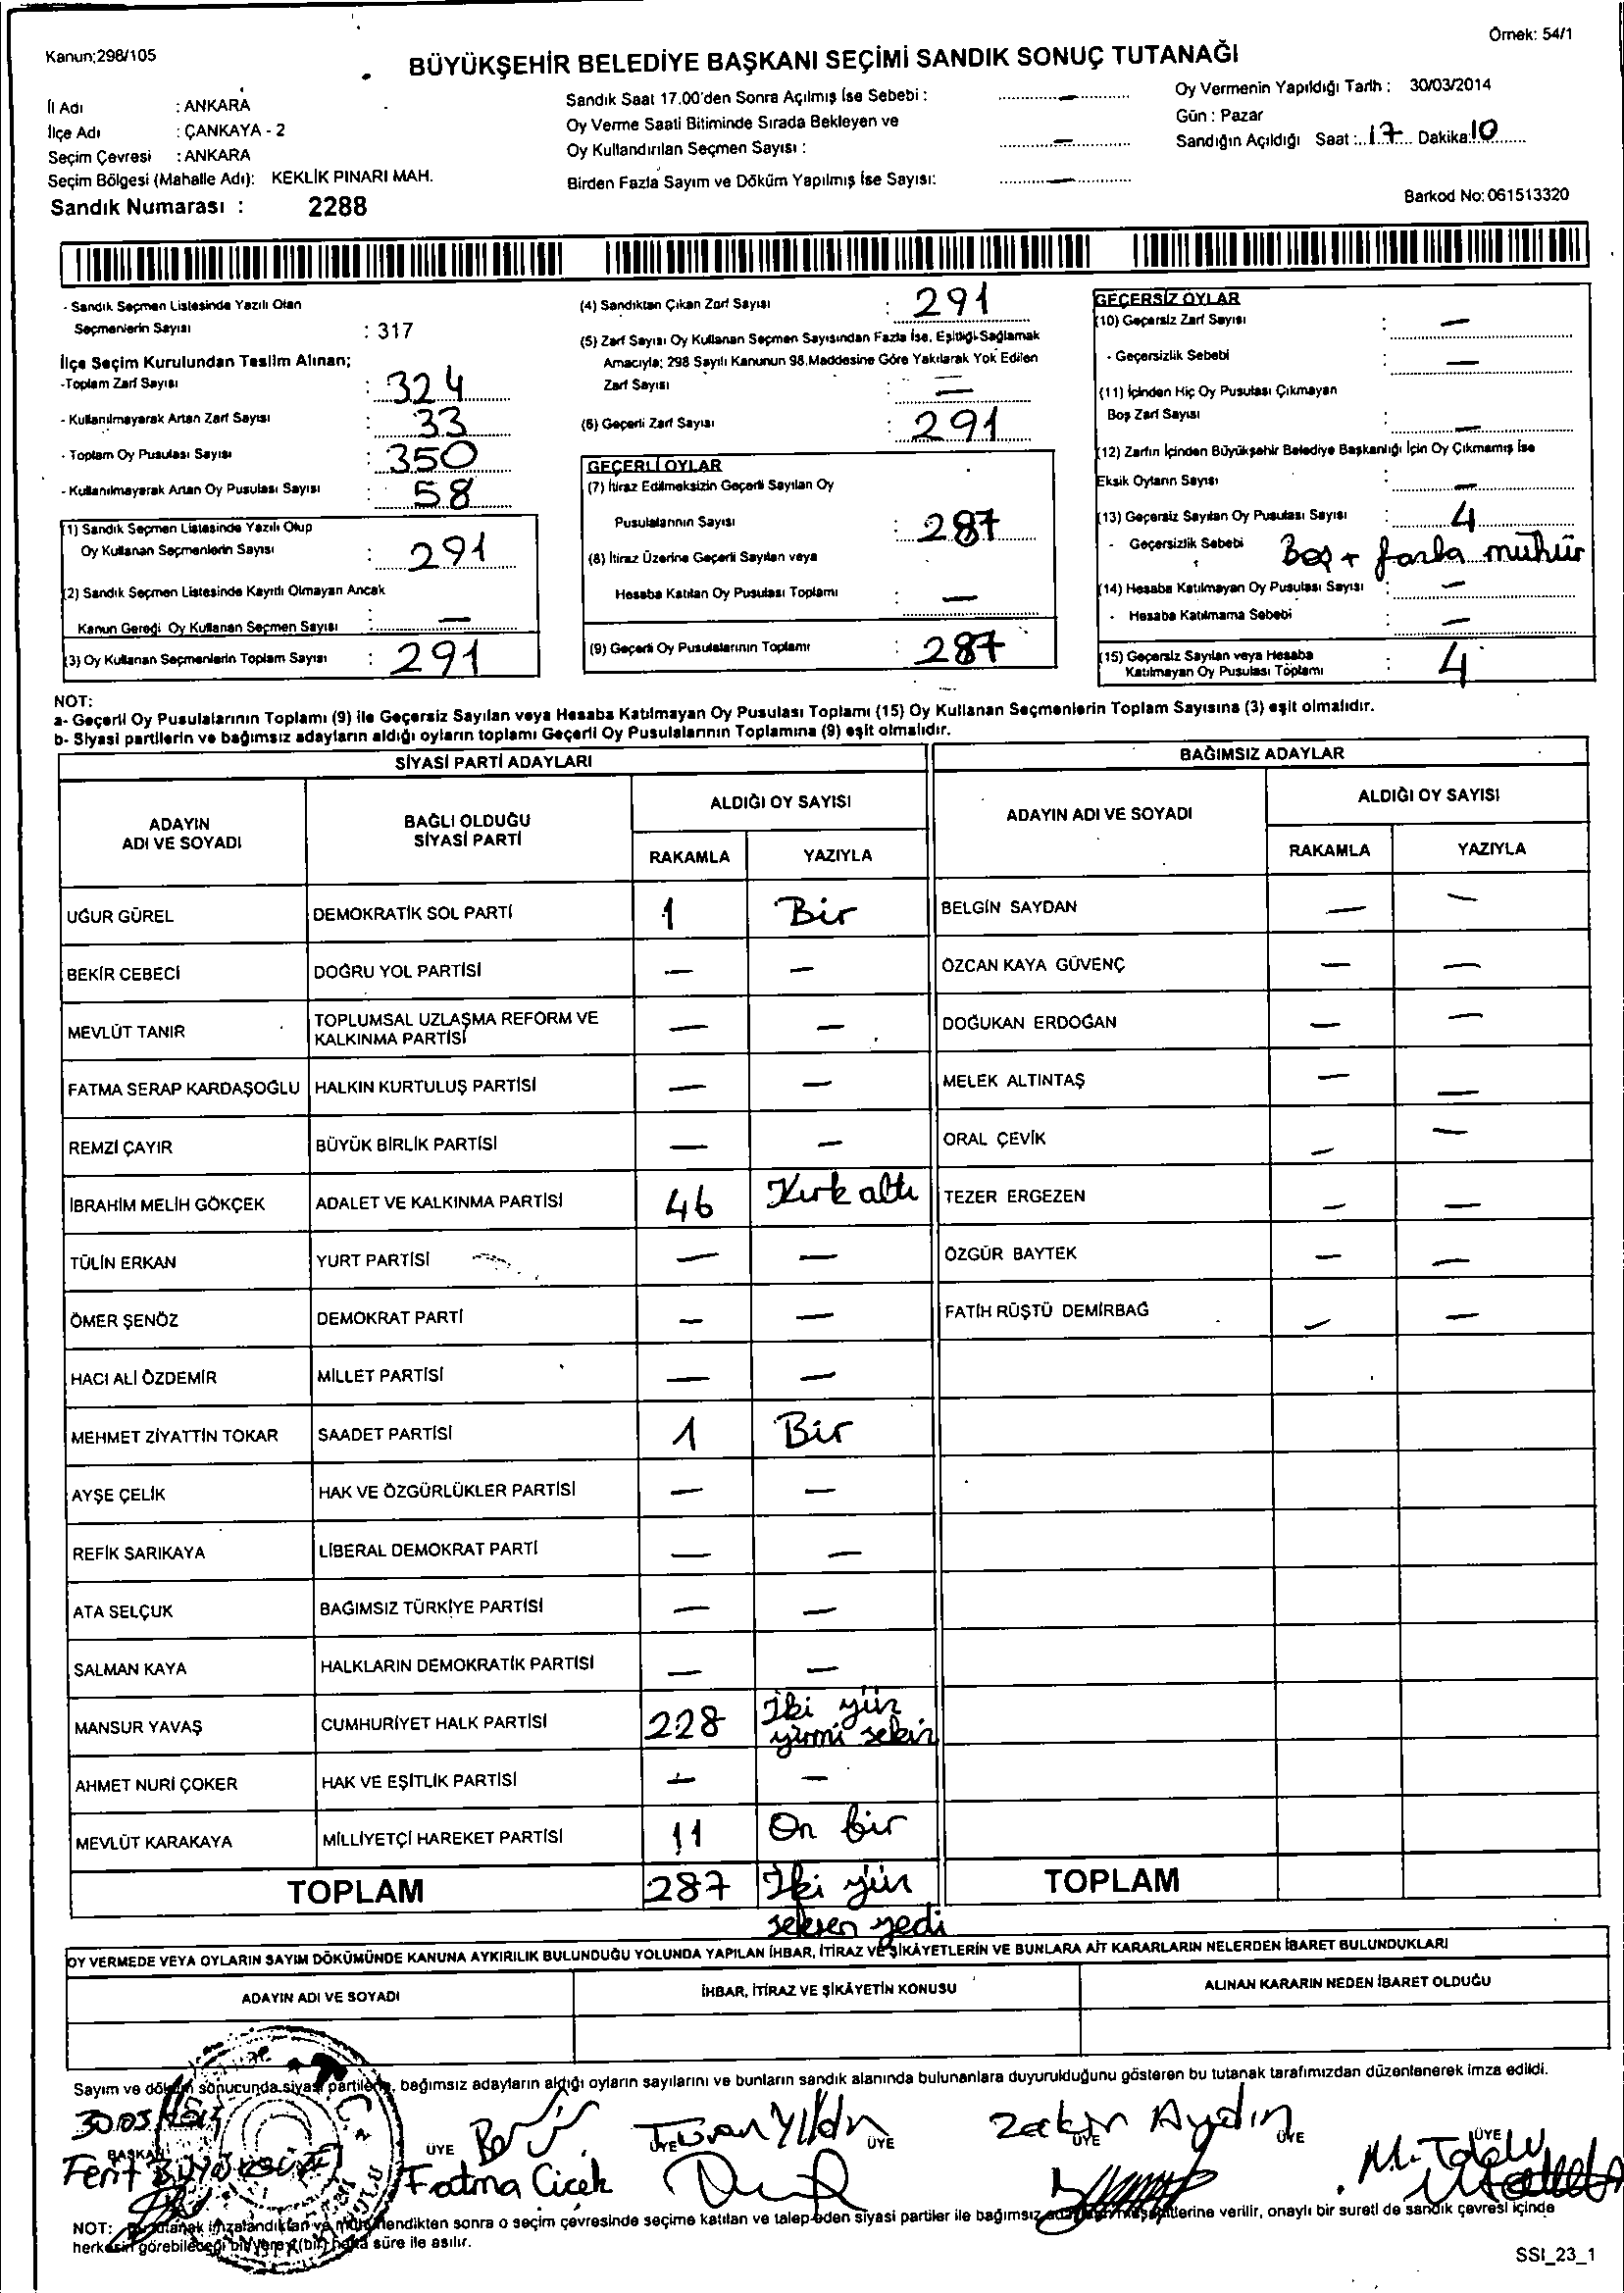 Kanun;298/105
Örnek: 54/1
BÜYÜKŞEHİR BELEDİYE BAŞKANI SEÇİMİ SANDIK SONUÇ TUTANAĞI
İl Adı : ANKARA
İlçe Adı : ÇANKAYA - 2
Seçim Çevresi : ANKARA
Seçim Bölgesi (Mahalle Adı): KEKLİK PINARI MAH.
Sandık Numarası : 2288
Sandık Saat 17.00'den Sonra Açılmış İse Sebebi : —
Oy Verme Saati Bitiminde Sırada Bekleyen ve
Oy Kullandırılan Seçmen Sayısı : —
Birden Fazla Sayım ve Döküm Yapılmış İse Sayısı: —
Oy Vermenin Yapıldığı Tarih : 30/03/2014
Gün : Pazar
Sandığın Açıldığı Saat : 17 Dakika: 10
Barkod No: 061513320
- Sandık Seçmen Listesinde Yazılı Olan
Seçmenlerin Sayısı : 317
İlçe Seçim Kurulundan Teslim Alınan;
-Toplam Zarf Sayısı : 324
- Kullanılmayarak Artan Zarf Sayısı : 33
- Toplam Oy Pusulası Sayısı : 350
- Kullanılmayarak Artan Oy Pusulası Sayısı : 58
(1) Sandık Seçmen Listesinde Yazılı Olup
Oy Kullanan Seçmenlerin Sayısı : 291
(2) Sandık Seçmen Listesinde Kayıtlı Olmayan Ancak
Kanun Gereği Oy Kullanan Seçmen Sayısı : —
(3) Oy Kullanan Seçmenlerin Toplam Sayısı : 291
(4) Sandıktan Çıkan Zarf Sayısı : 291
(5) Zarf Sayısı Oy Kullanan Seçmen Sayısından Fazla İse, Eşitliği Sağlamak
Amacıyla; 298 Sayılı Kanunun 98.Maddesine Göre Yakılarak Yok Edilen
Zarf Sayısı : —
(6) Geçerli Zarf Sayısı : 291
GEÇERLİ OYLAR
(7) İtiraz Edilmeksizin Geçerli Sayılan Oy
Pusulalarının Sayısı : 287
(8) İtiraz Üzerine Geçerli Sayılan veya
Hesaba Katılan Oy Pusulası Toplamı : —
(9) Geçerli Oy Pusulalarının Toplamı : 287
GEÇERSİZ OYLAR
(10) Geçersiz Zarf Sayısı : —
- Geçersizlik Sebebi : —
(11) İçinden Hiç Oy Pusulası Çıkmayan
Boş Zarf Sayısı : —
(12) Zarfın İçinden Büyükşehir Belediye Başkanlığı İçin Oy Çıkmamış İse
Eksik Oyların Sayısı : —
(13) Geçersiz Sayılan Oy Pusulası Sayısı : 4
- Geçersizlik Sebebi Boş + fazla mühür
(14) Hesaba Katılmayan Oy Pusulası Sayısı : —
- Hesaba Katılmama Sebebi : —
(15) Geçersiz Sayılan veya Hesaba
Katılmayan Oy Pusulası Toplamı : 4
NOT:
a- Geçerli Oy Pusulalarının Toplamı (9) ile Geçersiz Sayılan veya Hesaba Katılmayan Oy Pusulası Toplamı (15) Oy Kullanan Seçmenlerin Toplam Sayısına (3) eşit olmalıdır.
b- Siyasi partilerin ve bağımsız adayların aldığı oyların toplamı Geçerli Oy Pusulalarının Toplamına (9) eşit olmalıdır.
SİYASİ PARTİ ADAYLARI
ADAYIN ADI VE SOYADI BAĞLI OLDUĞU SİYASİ PARTİ ALDIĞI OY SAYISI
RAKAMLA YAZIYLA
UĞUR GÜREL DEMOKRATİK SOL PARTİ 1 Bir
BEKİR CEBECİ DOĞRU YOL PARTİSİ — —
MEVLÜT TANIR TOPLUMSAL UZLAŞMA REFORM VE KALKINMA PARTİSİ — —
FATMA SERAP KARDAŞOĞLU HALKIN KURTULUŞ PARTİSİ — —
REMZİ ÇAYIR BÜYÜK BİRLİK PARTİSİ — —
İBRAHİM MELİH GÖKÇEK ADALET VE KALKINMA PARTİSİ 46 Kırk altı
TÜLİN ERKAN YURT PARTİSİ — —
ÖMER ŞENÖZ DEMOKRAT PARTİ — —
HACI ALİ ÖZDEMİR MİLLET PARTİSİ — —
MEHMET ZİYATTİN TOKAR SAADET PARTİSİ 1 Bir
AYŞE ÇELİK HAK VE ÖZGÜRLÜKLER PARTİSİ — —
REFİK SARIKAYA LİBERAL DEMOKRAT PARTİ — —
ATA SELÇUK BAĞIMSIZ TÜRKİYE PARTİSİ — —
SALMAN KAYA HALKLARIN DEMOKRATİK PARTİSİ — —
MANSUR YAVAŞ CUMHURİYET HALK PARTİSİ 228 İki yüz yirmi sekiz
AHMET NURİ ÇOKER HAK VE EŞİTLİK PARTİSİ — —
MEVLÜT KARAKAYA MİLLİYETÇİ HAREKET PARTİSİ 11 On bir
TOPLAM 287 İki yüz seksen yedi
BAĞIMSIZ ADAYLAR
ADAYIN ADI VE SOYADI ALDIĞI OY SAYISI
RAKAMLA YAZIYLA
BELGİN SAYDAN — —
ÖZCAN KAYA GÜVENÇ — —
DOĞUKAN ERDOĞAN — —
MELEK ALTINTAŞ — —
ORAL ÇEVİK — —
TEZER ERGEZEN — —
ÖZGÜR BAYTEK — —
FATİH RÜŞTÜ DEMİRBAĞ — —
TOPLAM
OY VERMEDE VEYA OYLARIN SAYIM DÖKÜMÜNDE KANUNA AYKIRILIK BULUNDUĞU YOLUNDA YAPILAN İHBAR, İTİRAZ VE ŞİKÂYETLERİN VE BUNLARA AİT KARARLARIN NELERDEN İBARET BULUNDUKLARI
ADAYIN ADI VE SOYADI İHBAR, İTİRAZ VE ŞİKÂYETİN KONUSU ALINAN KARARIN NEDEN İBARET OLDUĞU
Sayım ve döküm sonucunda siyasi partilerin, bağımsız adayların aldığı oyların sayılarını ve bunların sandık alanında bulunanlara duyurulduğunu gösteren bu tutanak tarafımızdan düzenlenerek imza edildi.
BAŞKAN ÜYE ÜYE ÜYE ÜYE ÜYE ÜYE
Ferit
Fatma Çiçek
Turan Yıldız
Zakir Aydın
NOT: Bu tutanak imzalandıktan ve mühürlendikten sonra o seçim çevresinde seçime katılan ve talep eden siyasi partiler ile bağımsız verilir, onaylı bir sureti de sandık çevresi içinde
herkesin görebileceği bir yere (bir) hafta süre ile asılır.
SSI_23_1